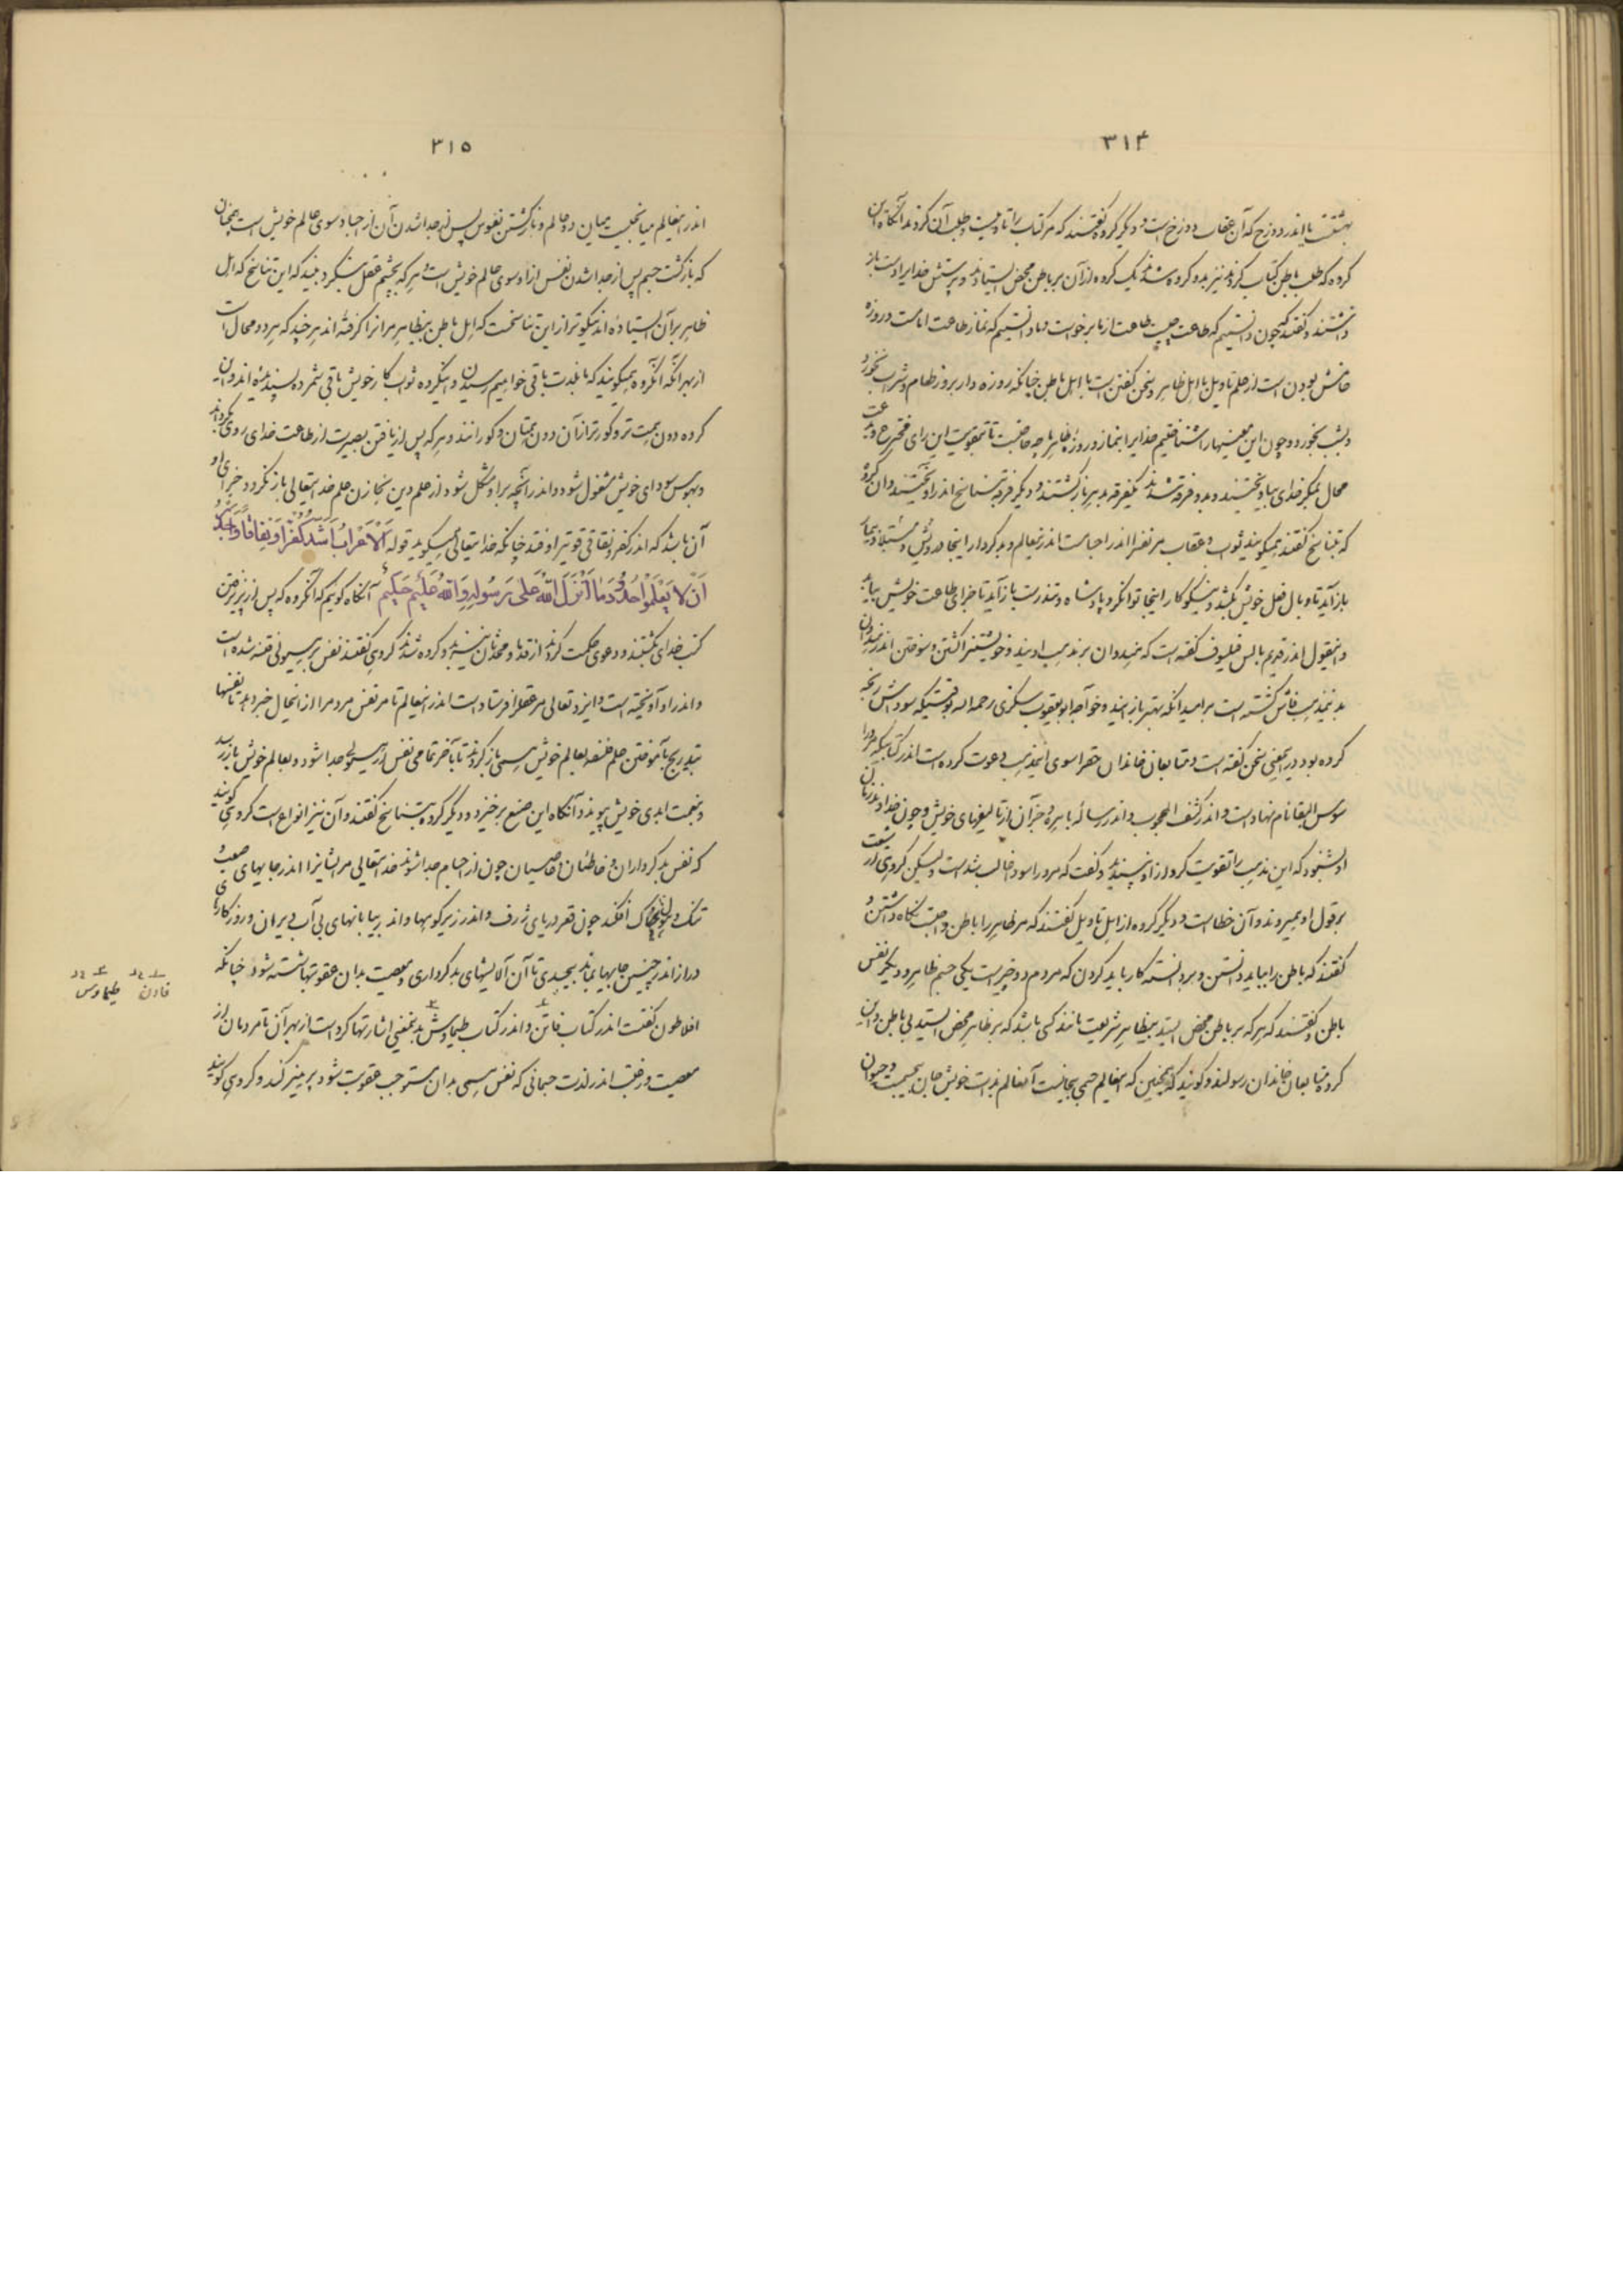 ۳۱۴
بهشتست یا اندر دوزخ که آن عقاب دوزخ است و دیگر گروه گفتند که مر کتاب را تاویلست و طلب آن کردند آنگاه این
گروه که طلب باطن کتاب کردند نیز بدو گروه شدند یک گروه از آن بر باطن محض ایستادند و پرستش خدایرا دست باز
داشتند و گفتند که چون دانستیم که طاعت چیست طاعت از ما برخواست و ما دانستیم که نماز طاعت امامست و روزه
خامش بودن است از علم تاویل با اهل ظاهر و سخن گفتن است با اهل باطن چنانکه روزه دار بروز طعام و شراب نخورد
و بشب بخورد و چون این معنیها را شناختیم خدایرا بنماز و روزۀ ظاهر چه حاجتست تا بتقویت این رای
محال بمکر خدای بیاویختند و بدو فرقه شدند یکفرقه بدهر بازگشتند و دیگر فرقه بتناسخ اندر آویختند و آن گروه
که بتناسخ گفتند همیگویند ثواب و عقاب مر نفس را اندر اجسامست اندر اینعالم و بدکردار اینجا درویش و مبتلا و بیمار
باز آید تا وبال فعل خویش بکشد و نیکوکار اینجا توانگر و پادشاه و تندرست باز آید تا جزای طاعت خویش بیابد
و اینقول اندر قدیم بالس فیلسوف گفته است که هندوان بر مذهب اویند و خویشتن را کشتن و سوختن اندر هندوان
بدینمذهب فاش گشته است بر امید آنکه بهتر باز آیند و خواجه ابو یعقوب سکزی رحمه الله بوقتیکه سوداش رنجه
کرده بود در اینمعنی سخن گفته است و متابعان خاندان حق را سوی اینمذهب دعوت کرده است اندر کتابیکه مر او را
سوس البقا نام نهاد است و اندر کشف المحجوب و اندر رسالۀ باهره و جز آن از تالیفهای خویش و چون خداوند زمان
او بشنود که این مذهب را تقویت کرد از او نپسندید و گفت که مرو را سودا غالب شد است ولیکن گروهی از شیعت
بر قول او بمیروند و آن خطاست و دیگر گروه از اهل تاویل گفتند که مر ظاهر را با باطن واجبست نگاه داشتن و
گفتند که باطن را بباید دانستن و بر دانسته کار باید کردن که مردم دو چیز است یکی جسم ظاهر و دیگر نفس
باطن و گفتند که هر که بر باطن محض ایستد بیظاهر شریعت مانند کسی باشد که بر ظاهر محض ایستد بی باطن و این
گروه متابعان خاندان رسولند و گویند که همچنین که اینعالم جسمی بیجانست آنعالم بذات خویش جان بیجسمست و حیوان
۳۱۵
اندر اینعالم میانجیست میان دو عالم و بازگشتن نفوس پس از جدا شدن آن از اجساد سوی عالم خویش است همچنان
که بازگشت جسم پس از جدا شدن نفس از او سوی عالم خویش است و هر که بچشم عقل بنگرد بیند که این تناسخ که اهل
ظاهر بر آن ایستاده اند نیکوتر از این تناسخست که اهل باطن بیظاهر مر آنرا گرفته اند هر چند که هر دو محال است
از بهر آنکه آنگروه همیگویند که ما بلذت باقی خواهیم رسیدن و اینگروه ثواب کار خویش باقی شمرده پسندیده اند و این
گروه دون همت تر و کورتر از آن دون همتان و کورانند و هر که پس از یافتن بصیرت از طاعت خدای روی بگرداند
و بهوس سودای خویش مشغول شود و اندر آنچه برا و مشکل شود از علم دین بخازن علم خدایتعالی باز نگردد جزای او
آن باشد که اندر کفر و نفاقی قویتر اوفتد چنانکه خدایتعالی میگوید قوله اَلْاَعْرابُ اَشَدُّ کُفْراً وَ نِفاقاً وَ اَجْدَرُ
اَنْ لا یَعْلَمُوا حُدُودَ ما اَنْزَلَ اللهُ عَلی رَسُولِهِ وَ اللهُ عَلیمٌ حَکیمٌ آنگاه گوئیم که آنگروه که پس از نپذیرفتن
کتب خدای بگشتند و دعوی حکمت کردند از قدما و محدثان نیز بدو گروه شدند گروهی گفتند نفس بر هیولی فتنه شده است
و اندر او آویخته است و ایزد تعالی مر عقل را فرستاد است اندر اینعالم تا مر نفس مردم را از اینحال خبر دهد تا نفسها
بتدریج بآموختن علم فلسفه بعالم خویش همی باز گردند تا بآخر تمامی نفس از هیولی جدا شود و بعالم خویش باز رسد
و بنعمت ابدی خویش پیوندد و آنگاه این صنع برخیزد و دیگر گروه بتناسخ گفتند و آن نیز انواع است گروهی گویند
که نفس بدکرداران و خاطئان و عاصیان چون از اجسام جدا شوند خدایتعالی مر ایشانرا اندر جایهای صعب و
تنک و هولناک افکند چون قعر دریای ژرف و اندر زیر کوهها و اندر بیابانهای بی آب و ویران و روزگارهای
دراز اندر چنین جایها بماند بیجسدی تا آن آلایشهای بدکرداری و معصیت بدان عقوبتها شسته شود چنانکه
افلاطون گفتست اندر کتاب فاتن و اندر کتاب طیماوش بدینمعنی اشارتها کرد است از بهر آن تا مردمان از
معصیت و رغبت اندر لذت جسمانی که نفس همی بدان مستوجب عقوبت شود پرهیز کنند و گروهی گویند
فادن طیماوس